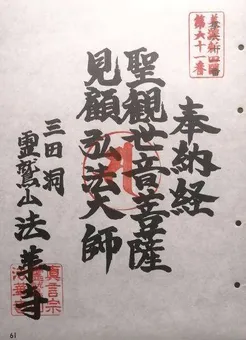 美濃新四国
第六十一番
奉納経
聖観世音菩薩
見顧弘法大師
三田洞
霊鷲山 法華寺
真言宗
61